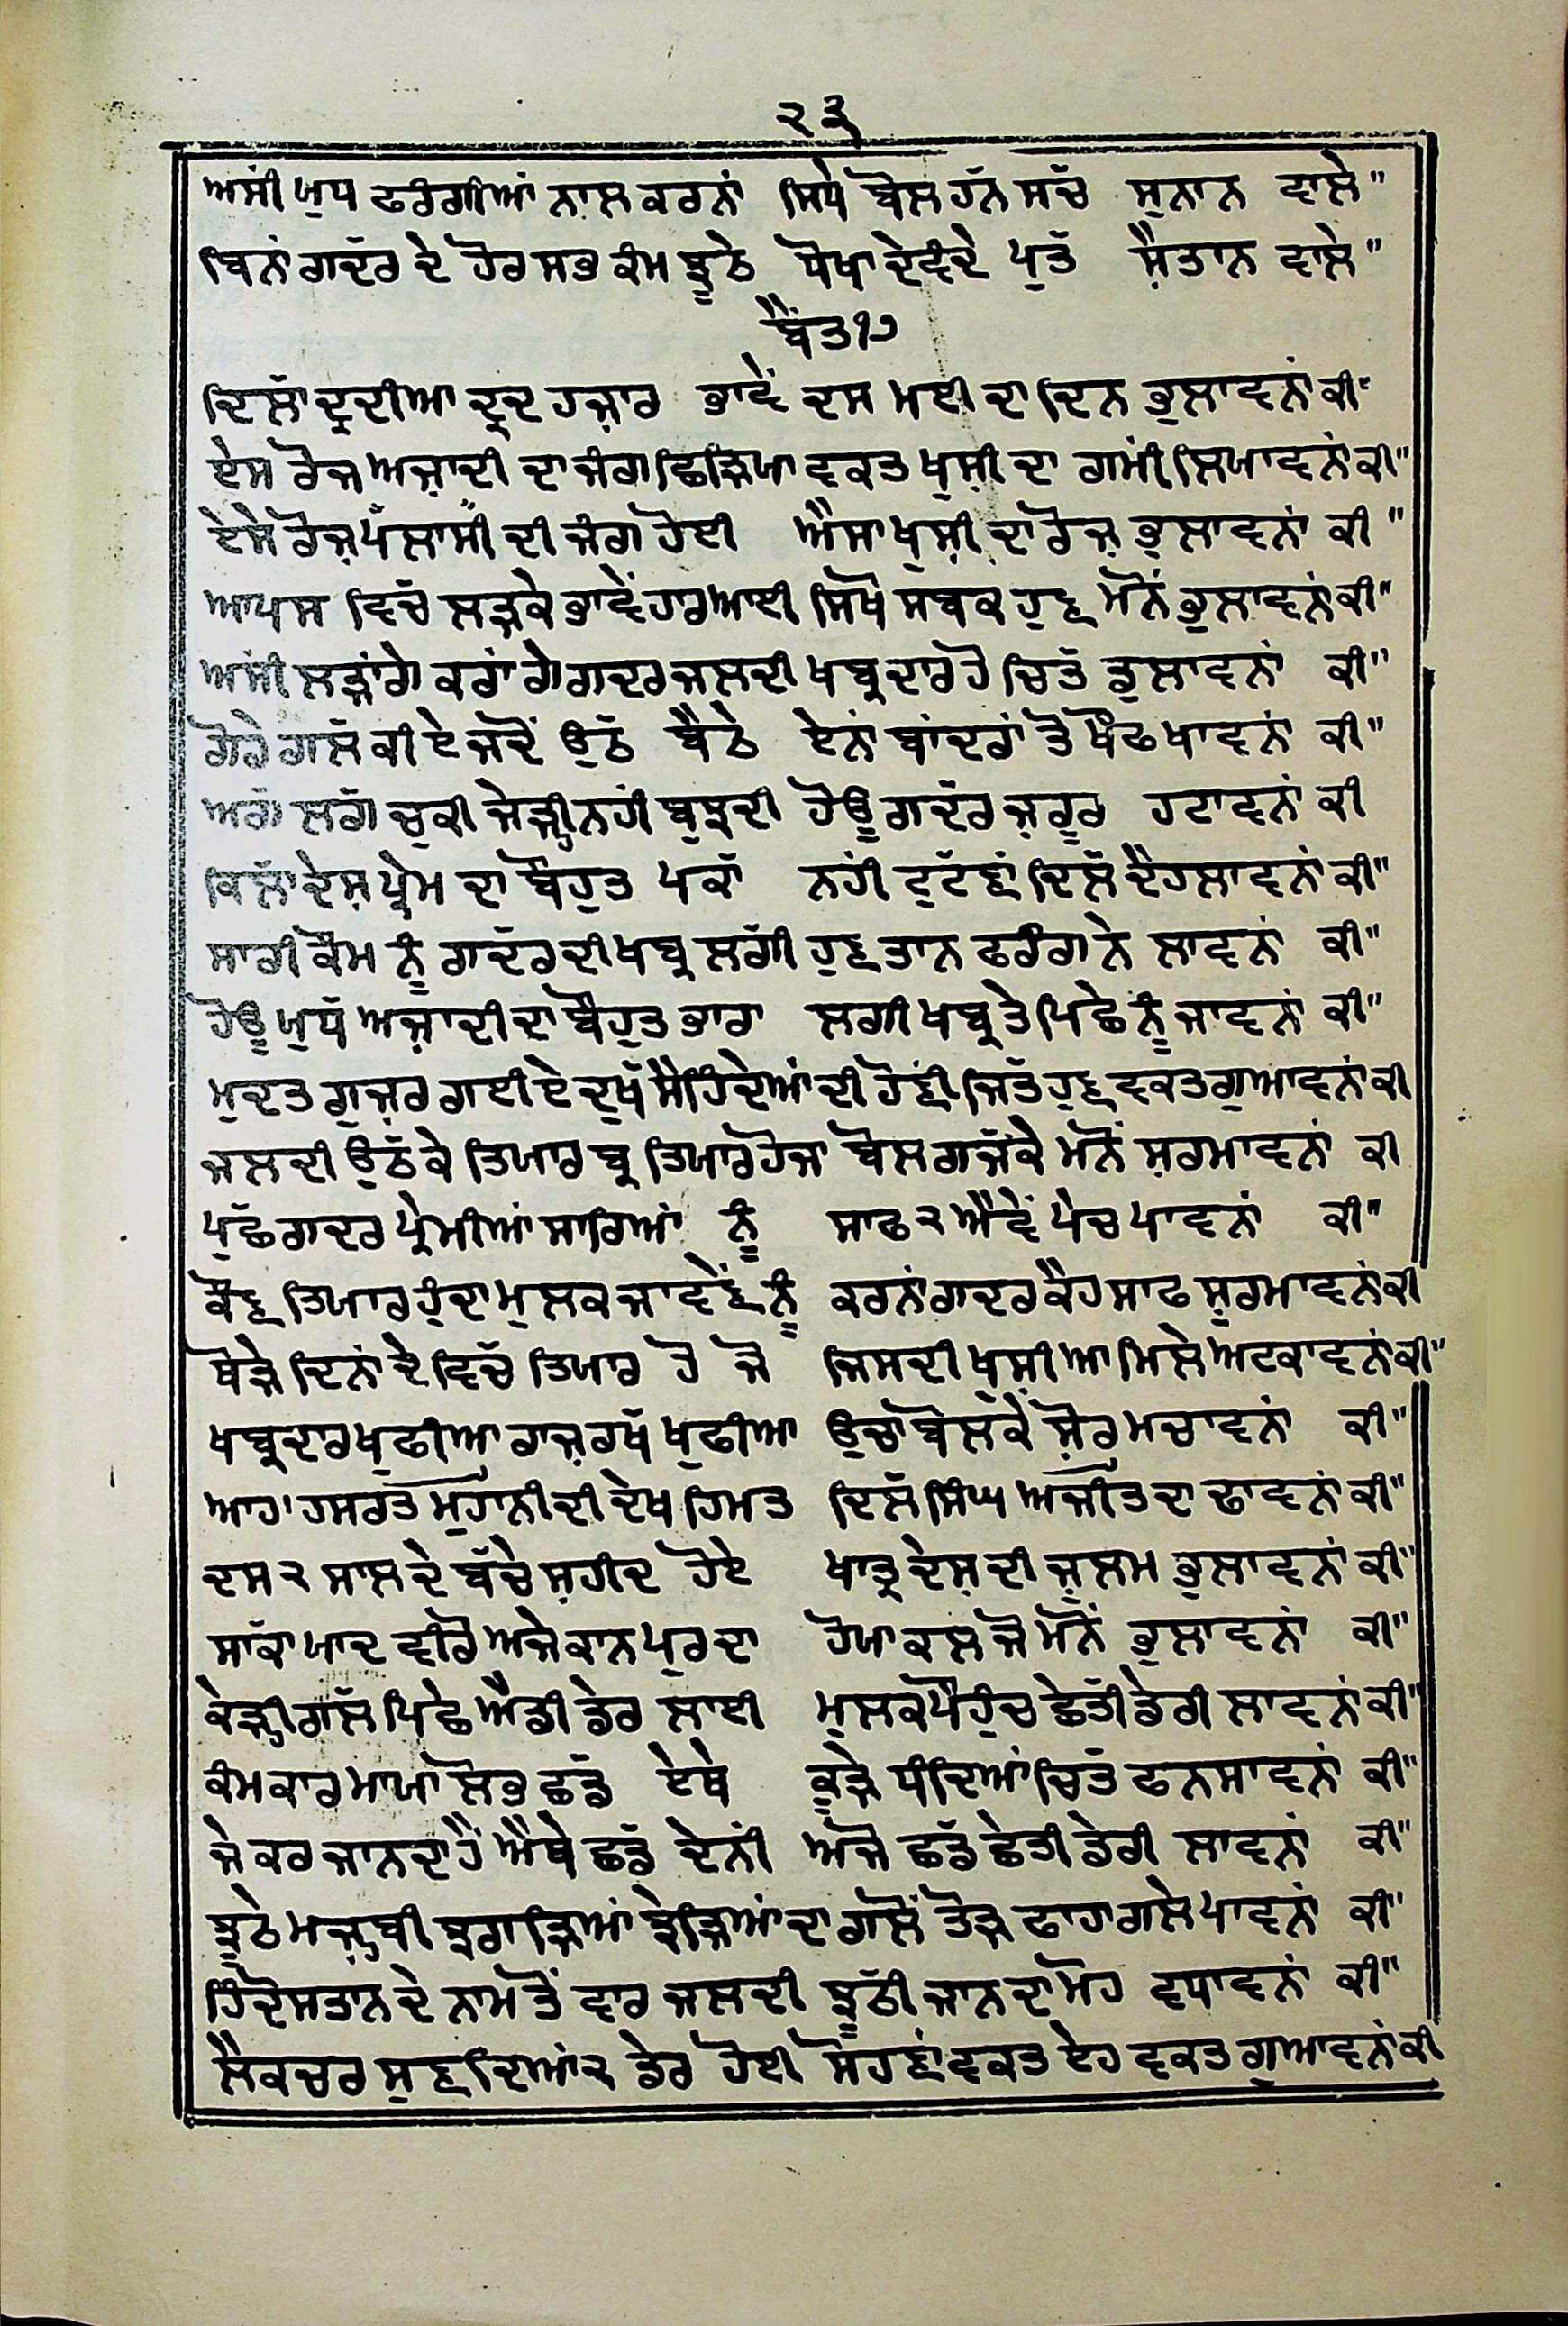 ੨੩
ਅਸੀਂ ਯੁਧ ਫਰੰਗੀਆਂ ਨਾਲ ਕਰਨਾਂ ਸਿਧੇ ਬੋਲ ਹੱਨ ਸਚੱ ਸੁਨਾਨ ਵਾਲੇ"
ਬਿਨਾਂ ਗਦੱਰ ਦੇ ਹੋਰ ਸਭ ਕੰਮ ਝੂਠੇ ਧੋਖਾ ਦੇਵੰਦੇ ਪੁਤੱ ਸ਼ੈਤਾਨ ਵਾਲੇ"
ਬੈਂਤ ੧੭
ਦਿਲਾੱ ਦ੍ਰਦੀਆ ਦ੍ਰਦ ਹਜ਼ਾਰ ਭਾਵੇਂ ਦਸ ਮਈ ਦਾ ਦਿਨ ਭੁਲਾਵਨਾਂ ਕੀ"
ਏਸ ਰੋਜ ਅਜ਼ਾਦੀ ਦਾ ਜੰਗ ਛਿੜਿਯਾ ਵਕਤ ਖੁਸ਼ੀ ਦਾ ਗਮੀਂ ਲਿਯਾਵਨਾਂ ਕੀ"
ਏਸੇ ਰੋਜ਼ ਪੱਲਾਸੀ ਦੀ ਜੰਗ ਹੋਈ ਐਸਾ ਖੁਸ਼ੀ ਦਾ ਰੋਜ਼ ਭੁਲਾਵਨਾਂ ਕੀ"
ਆਪਸ ਵਿਚੱ ਲੜਕੇ ਭਾਵੇਂ ਹਾਰ ਆਈ ਸਿਖੋ ਸਬਕ ਹੁਣ ਮੱਨੋਂ ਭੁਲਾਵਨਾਂ ਕੀ"
ਅਸੀਂ ਲੜਾਂਗੇ ਕਰਾਂਗੇ ਗਦਰ ਜਲਦੀ ਖਬ੍ਰਦਾਰ ਹੋ ਚਿਤੱ ਡੁਲਾਵਨਾਂ ਕੀ"
ਗੋਰੇ ਗਲੱ ਕੀ ਏ ਜਦੋਂ ਉਠੱ ਬੈਠੇ ਏਨਾਂ ਬਾਂਦਰਾਂ ਤੋ ਖੌਫ ਖਾਵਨਾਂ ਕੀ"
ਅਗੱ ਲਗੱ ਚੁਕੀ ਜੇੜ੍ਹੀ ਨਹੀਂ ਬੁਝਦੀ ਹੋਊ ਗਦੱਰ ਜ਼ਰੂਰ ਹਟਾਵਨਾਂ ਕੀ
ਕਿਲਾੱ ਦੇਸ਼ ਪ੍ਰੇਮ ਦਾ ਬੌਹੁਤ ਪਕਾੱ ਨਹੀਂ ਟੁਟੱਣਾਂ ਦਿਲੱ ਦੈਹਲਾਵਨਾਂ ਕੀ"
ਸਾਰੀ ਕੌਮ ਨੂੰ ਗਦੱਰ ਦੀ ਖਬ੍ਰ ਲਗੱੀ ਹੁਣ ਤਾਨ ਫਰੰਗ ਨੇ ਲਾਵਨਾਂ ਕੀ"
ਹੋਊ ਯੁਧੱ ਅਜ਼ਾਦੀ ਦਾ ਬੌਹੁਤ ਭਾਰਾ ਲਗੀ ਖਬ੍ਰ ਤੇ ਪਿਛੇ ਨੂੰ ਜਾਵਨਾਂ ਕੀ"
ਮੁਦਤ ਗੁਜ਼ਰ ਗਈ ਏ ਦੁਖੱ ਸੈਂਹਿਦੇਆਂ ਦੀ ਹੋਣੀਂ ਜਿਤੱ ਹੁਣ ਵਕਤ ਗੁਆਵਨਾਂ ਕੀ
ਜਲਦੀ ਉਠੱ ਕੇ ਤਿਯਾਰ ਬ੍ਰ ਤਿਯਾਰ ਹੋਜਾ ਬੋਲ ਗਜੱਕੇ ਮੱਨੋਂ ਸ਼ਰਮਾਵਨਾਂ ਕੀ
ਪੁਛੱ ਗਦਰ ਪ੍ਰੇਮੀਆਂ ਸਾਰਿਆਂ ਨੂੰ ਸਾਫ ੨ ਐਵੇਂ ਪੇਚ ਪਾਵਨਾਂ ਕੀ"
ਕੌਣ ਤਿਯਾਰ ਹੁੰਦਾ ਮੁਲਕ ਜਾਵੇਣ ਨੂੰ ਕਰਨਾਂ ਗਦਰ ਕੈਹ ਸਾਫ ਸ਼ਰਮਾਵਨਾਂ ਕੀ
ਥੋੜੇ ਦਿਨਾਂ ਦੇ ਵਿਚੱ ਤਿਯਾਰ ਹੋ ਜੋ ਜਿਸਦੀ ਖੁਸ਼ੀ ਆ ਮਿਲੇ ਅਟਕਾਵਨਾਂ ਕੀ"
ਖਬ੍ਰਦਾਰ ਖੁਫੀਆ ਰਾਜ਼ ਰਖੱ ਖੁਫੀਆ ਉਚਾ ਬੋਲਕੇ ਸ਼ੋਰ ਮਚਾਵਨਾਂ ਕੀ"
ਆਹਾ ਹਸਰਤ ਮੁਹਾਨੀ ਦੀ ਦੇਖ ਹਿਮਤ ਦਿਲੱ ਸਿੰਘ ਅਜੀਤ ਦਾ ਢਾਵਨਾਂ ਕੀ"
ਦਸ ੨ ਸਾਲ ਦੇ ਬੱਚੇ ਸ਼ਹੀਦ ਹੋਏ ਖਾਤ੍ਰ ਦੇਸ਼ ਦੀ ਜ਼ੁਲਮ ਭੁਲਾਵਨਾਂ ਕੀ"
ਸਾਕਾੱ ਯਾਦ ਵੀਰੋ ਅਜੇ ਕਾਨਪੁਰ ਦਾ ਹੋਯਾ ਕਲ ਜੋ ਮੱਨੋਂ ਭੁਲਾਵਨਾਂ ਕੀ"
ਕੇੜ੍ਹੀ ਗਲੱ ਪਿਛੇ ਐਡੀ ਡੇਰ ਲਾਈ ਮੁਲਕ ਪੌਹੁੰਚ ਛੇਤੱੀ ਡੇਰੀ ਲਾਵਨਾਂ ਕੀ"
ਕੰਮ ਕਾਰ ਮਾਯਾ ਲੋਭ ਛਡੱ ਏਥੇ ਕੂੜੇ ਧੰਦਿਆਂ ਚਿਤੱ ਫਨਸਾਵਨਾਂ ਕੀ"
ਜੇ ਕਰ ਜਾਨਦਾ ਹੈਂ ਐਥੇ ਛਡੱ ਦੇਨੀਂ ਅਜੋ ਛਡੱ ਛੇਤੀ ਡੇਰੀ ਲਾਵਨਾਂ ਕੀ"
ਝੂਠੇ ਮਜ਼੍ਹਬੀ ਝਗੜਿਆਂ ਝੇੜਿਆਂ ਦਾ ਗਲੋਂ ਤੋੜ ਫਾਹਾ ਗਲੇ ਪਾਵਨਾਂ ਕੀ"
ਹਿੰਦੋਸਤਾਨ ਦੇ ਨਾਮ ਤੋਂ ਵਾਰ ਜਲਦੀ ਝੂਠੱੀ ਜਾਨ ਦਾ ਮੋਹ ਵਧਾਵਨਾਂ ਕੀ"
ਲੈਕਚਰ ਸੁਣਦਿਆਂ ੨ ਡੇਰ ਹੋਈ ਸੋਹਣਾਂ ਵਕਤ ਏਹ ਵਕਤ ਗੁਆਵਨਾਂ ਕੀ